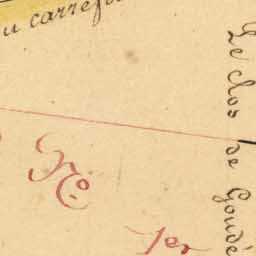 u carref
Le clos de Gondé
1er